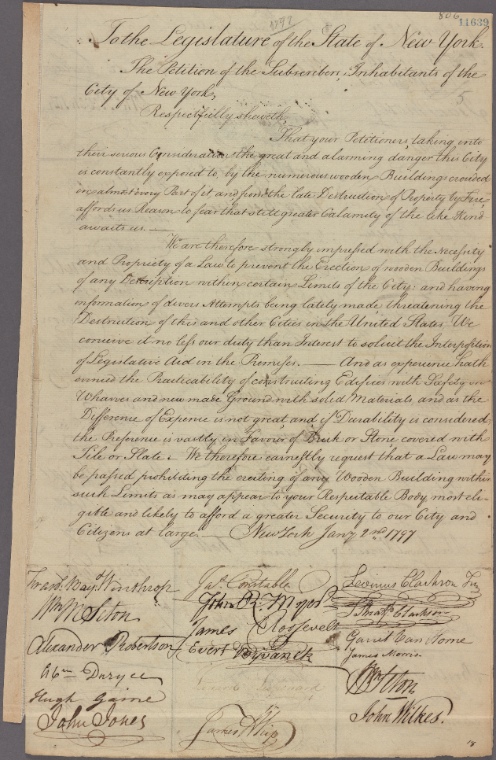 1797
806
11639
To the Legislature of the State of New York.
The Petition of the Subscribers, Inhabitants of the
City of New York,
Respectfully sheweth,
5
That your Petitioners taking into
their serious Consideration the great and alarming danger this City
is constantly exposed to, by the numerous wooden Buildings crouded
in almost every Part of it, and from the late Destruction of Property by Fire
affords us Reason to fear that still greater Calamity of the like Kind
awaits us.—
We are therefore strongly impressed with the necessity
and Propriety of a Law to prevent the Erection of wooden Buildings
of any Description within certain Limits of the City: and having
information of divers Attempts being lately made, threatening the
Destruction of this and other Cities in the United States. We
conceive it no less our duty than Interest to solicit the Interposition
of Legislative Aid in the Premises.— And as experience hath
evinced the Practicability of constructing Edifices with Safety on
Wharves and new made Ground with solid Materials, and as the
Difference of Expence is not great and if Durability is considered
the Preference is vastly in Favour of Brick or Stone covered with
Tile or Slate. We therefore earnestly request that a Law may
be passed prohibiting the erecting of any Wooden Building within
such Limits as may appear to your Respectable Body most eli-
gible and likely to afford a greater Security to our City and
Citizens at large.— New York Jany 2nd 1797
Winthrop
Wm W Seton
Alexander Robertson
Abm Duryee
Hugh Gaine
John Jones
Jas. Constable
John R. Myer
James Roosevelt
Evert Byvanck
Levinus Clarkson
Clarkson
Garrit Van Horne
James Morris
Seton
John Wilkes
18